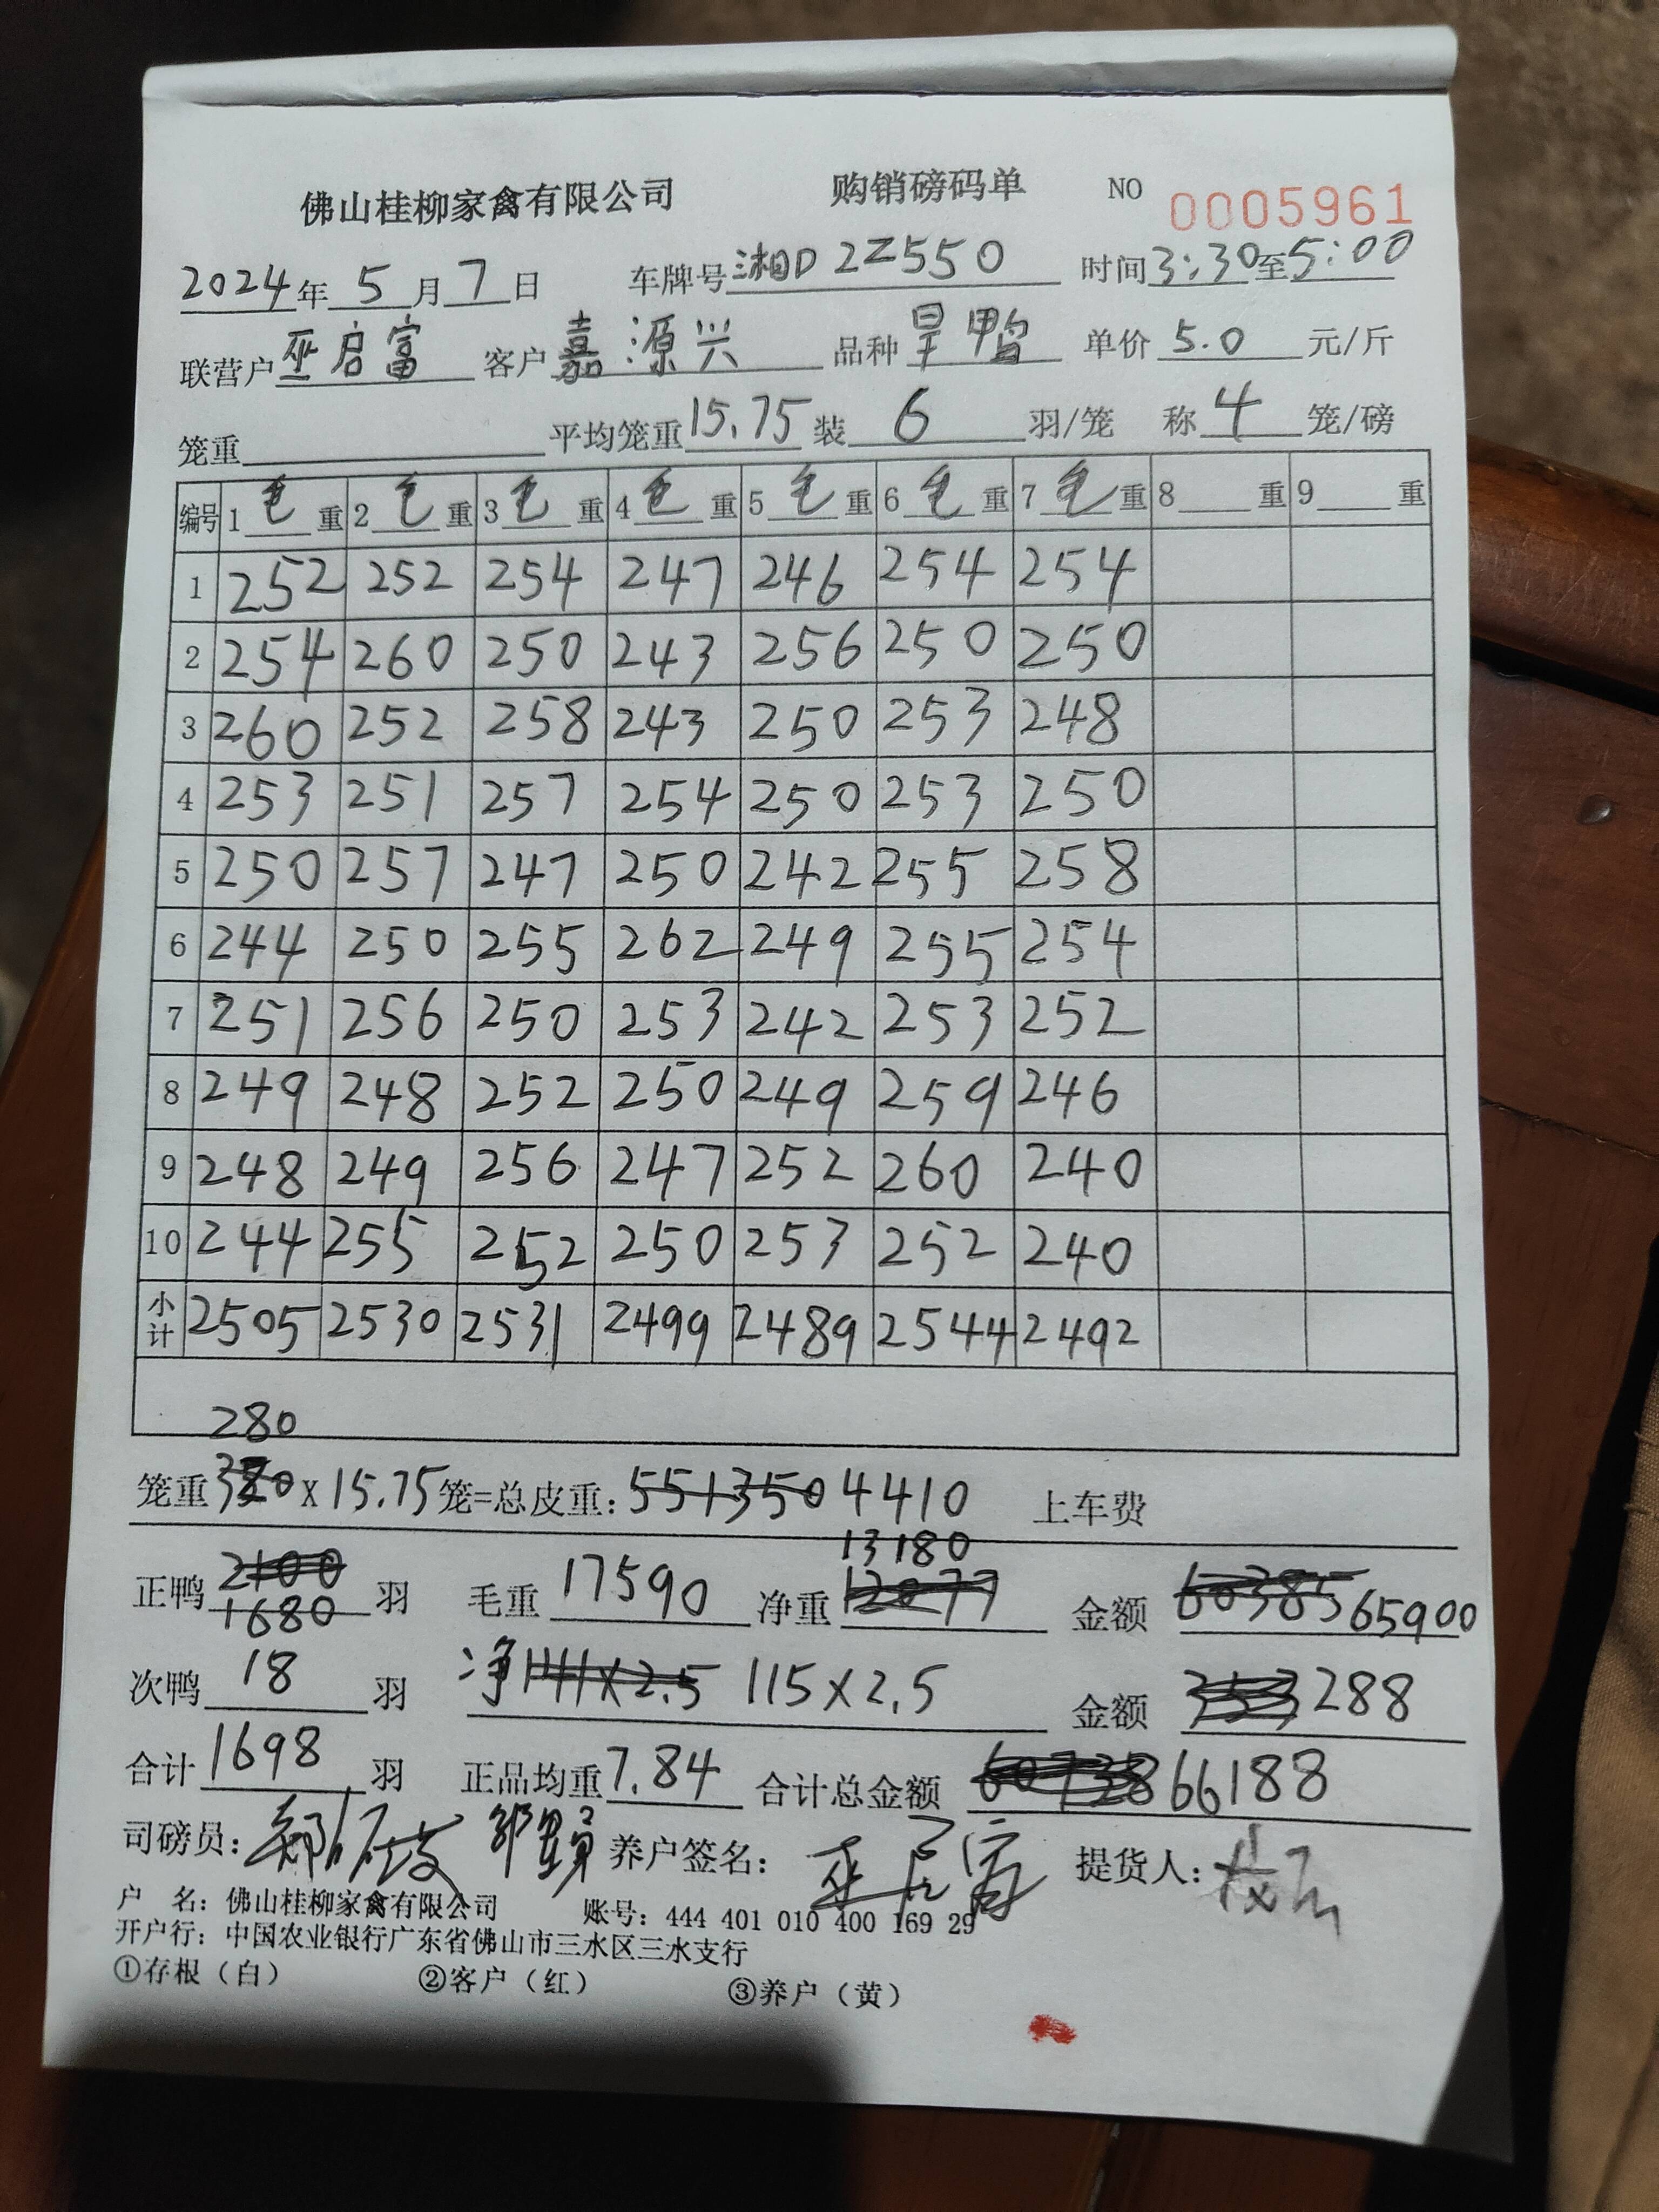 佛山桂柳家禽有限公司 购销磅码单 NO 0005961
2024年5月7日 车牌号湘D 2Z550 时间3:30至5:00
联营户巫启富 客户嘉源兴 品种旱鸭 单价5.0元/斤
笼重 平均笼重15.75装6羽/笼 称4笼/磅
编号 1毛重 2毛重 3毛重 4毛重 5毛重 6毛重 7毛重 8 重 9 重
1 252 252 254 247 246 254 254
2 254 260 250 243 256 250 250
3 260 252 258 243 250 253 248
4 253 251 257 254 250 253 250
5 250 257 247 250 242 255 258
6 244 250 255 262 249 255 254
7 251 256 250 253 242 253 252
8 249 248 252 250 249 259 246
9 248 249 256 247 252 260 240
10 244 255 252 250 253 252 240
小计 2505 2530 2531 2499 2489 2544 2492
280
笼重 X 15.75笼=总皮重: 5513504410 上车费
13180
正鸭2100羽 毛重17590 净重12077 金额60385 65900
1680
次鸭18羽 净141X2.5 115X2.5 金额353 288
合计1698羽 正品均重7.84 合计总金额 66188
司磅员: 养户签名:巫启富 提货人:
户 名: 佛山桂柳家禽有限公司 账号: 444 401 010 400 169 29
开户行: 中国农业银行广东省佛山市三水区三水支行
①存根（白） ②客户（红） ③养户（黄）